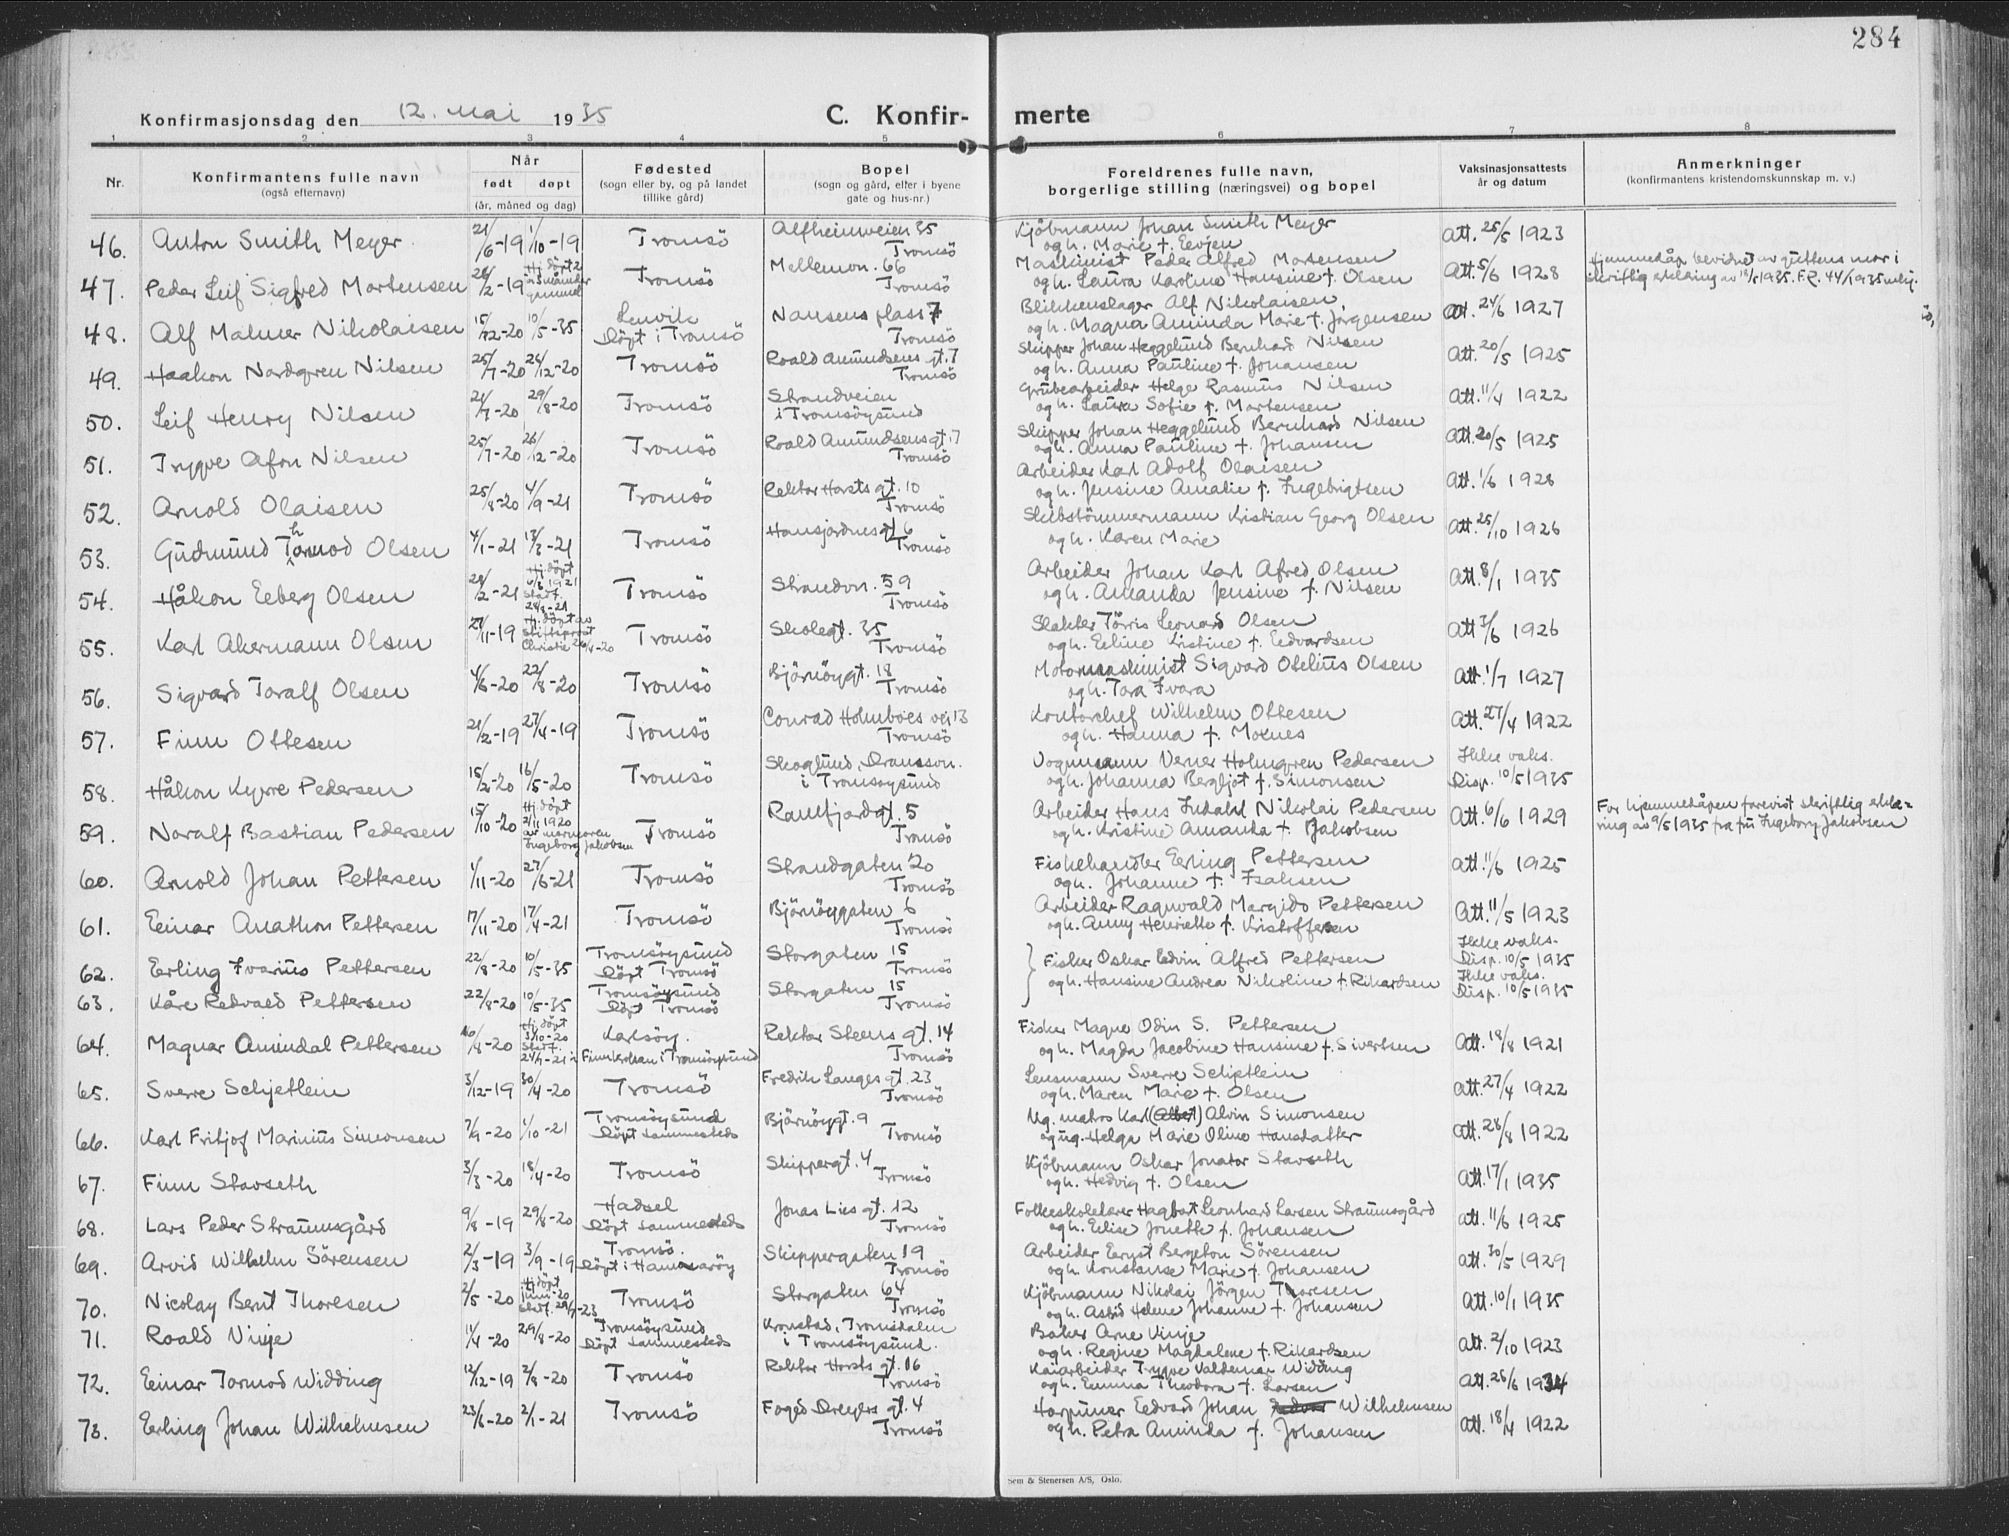 284
Konfirmasjonsdag den 12. Mai 1935
C. Konfir-merte
1 2 3 4 5 6 7 8
Nr.
Konfirmantens fulle navn
(også efternavn)
Når
født døpt
(år, måned og dag)
Fødested
(sogn eller by, og på landet
tillike gård)
Bopel
(sogn og gård, eller i byene
gate og hus-nr.)
Foreldrenes fulle navn,
borgerlige stilling (næringsvei) og bopel
Vaksinasjonsattests
år og datum
Anmerkninger
(konfirmantens kristendomskunnskap m. v.)
46. Anton Smith Meyer 21/6-19 1/10-19 Tromsö Alfheimveien 35 Tromsö Kjöbmann Johan Smith Meyer
og h. Marie f. Eevjen Att. 25/5 1923
47. Peder Leif Sigfred Mortensen 28/2-19 Hj. döpt 2 måneder gammel Tromsö Mellemvn. 66 Tromsö Maskinist Peder Alfred Mortensen
og h. Laura Karoline Hansine f. Olsen Att. 5/6 1928 Hjemmedåp bevidnet av guttens mor i
skriftlig erklæring av 18/5 1935. F.R. 44/1935
48. Alf Malmer Nikolaisen 15/12-20 10/5-35 Lenvik
Döpt i Tromsö Nansens plass 7 Tromsö Blikkenslager Alf Nikolaisen,
og h. Magna Aminda Marie f. Jörgensen Att. 24/6 1927
49. Haakon Nordgren Nilsen 25/7-20 26/12-20 Tromsö Roald Amundsens gt. 7 Tromsö Skipper Johan Heggelund Bernhard Nilsen
og h. Anna Pauline f. Johansen Att. 20/5 1925
50. Leif Henry Nilsen 21/7-20 29/8-20 Tromsö Strandveien
i Tromsöysund Grubearbeider Helge Rasmus Nilsen
og h. Laura Sofie f. Mortensen Att. 11/4 1922
51. Trygve Afon Nilsen 25/7-20 26/12-20 Tromsö Roald Amundsens gt. 7 Tromsö Skipper Johan Heggelund Bernhard Nilsen
og h. Anna Pauline f. Johansen Att. 20/5 1925
52. Arnold Olaisen 25/8-20 4/9-21 Tromsö Rektor Horsts gt. 10 Tromsö Arbeider Karl Adolf Olaisen
og h. Jensine Amalie f. Ingebrigtsen Att. 1/6 1928
53. Gudmund Thormod Olsen 4/1-21 13/3-21 Tromsö Hansjordnes gt 6 Tromsö Skibstömmermann Kristian Georg Olsen
og h. Karen Marie Att. 25/10 1926
54. Håkon Eeberg Olsen 28/2-21 Hj. döpt 6/3 1921 Stadf. 28/8-21 Tromsö Strandvn. 59 Tromsö Arbeider Johan Karl Afred Olsen
og h. Amanda Jensine f. Nilsen Att. 8/1 1935
55. Karl Akermann Olsen 27/11-19 Hj. döpt av Stiftsprost Christie 26/4-20 Tromsö Skolegt. 35 Tromsö Slakter Törris Leonard Olsen
og h. Eeline Kristine f. Eedvardsen Att 3/6 1926
56. Sigvard Toralf Olsen 4/6-20 22/8-20 Tromsö Björnöygt. 18 Tromsö Motormaskinist Sigvard Otelius Olsen
og h. Tora Ivara Att. 1/7 1927
57. Finn Ottesen 21/2-19 27/4-19 Tromsö Conrad Holmboes vei 13 Tromsö Kontorchef Wilhelm Ottesen
og h. Hanna f. Moknes Att. 27/4 1922
58. Håkon Kyrre Pedersen 15/2-20 16/5-20 Tromsö Skoglund, Dramsvn.
i Tromsöysund Vognmann Verner Holmgren Pedersen
og h. Johanna Bergljot f. Simonsen Ikke vaks.
Disp. 10/5 1935
59. Noralf Bastian Pedersen 15/10-20 Hj. döpt 2/11 1920 av mormoren Ingeborg Jakobsen Tromsö Ramfjordgt. 5 Tromsö Arbeider Hans Indahl Nikolai Pedersen
og h. Kristine Amanda f. Jakobsen Att. 6/6 1929 For hjemmedåpen forevist skriftlig erklæ-
ring av 9/5 1935 fra fru Ingeborg Jakobsen
60. Arnold Johan Pettersen 1/11-20 27/6-21 Tromsö Strandgaten 20 Tromsö Fiskehandler Eerling Pettersen
og h. Johanne f. Isaksen Att. 11/6 1925
61. Eeinar Anathon Pettersen 17/11-20 17/4-21 Tromsö Björnöygaten 6 Tromsö Arbeider Ragnvald Margido Pettersen
og h. Anny Henriette f. Kristoffersen Att. 11/5 1923
62. Eerling Ivarius Pettersen 22/8-20 10/5-35 Tromsöysund
Döpt Tromsö Storgaten 15 Tromsö Fisker Oskar Edvin Alfred Pettersen
og h. Hansine Andrea Nikoline f. Rikardsen Ikke vaks.
Disp. 10/5 1935
63. Kåre Redvald Pettersen 22/8-20 10/5-35 Tromsöysund
Döpt Tromsö Storgaten 15 Tromsö Ikke vaks.
Disp. 10/5 1935
64. Magnar Amindal Pettersen 10/8-20 Hj. döpt 3/10-20 Stadf. 24/4-21 i Karlsöy.
Finnkroken i Tromsöysund Rektor Steens gt. 14 Tromsö Fisker Magne Odin S. Pettersen
og h. Magda Jacobine Hansine f. Sivertsen Att. 18/8 1921
65. Sverre Schjetlein 3/12-19 30/4-20 Tromsö Fredrik Langes gt. 23 Tromsö Lensmann Sverre Schjetlein
og h. Maren Marie f. Olsen Att. 27/4 1922
66. Karl Fritjof Marinius Simonsen 7/9-20 1/10-21 Tromsöysund
Döpt sammesteds Björnöygt. 9 Tromsö Ug. matros Karl (Albert) Alvin Simonsen
og ug. Helga Marie Oline Hansdatter Att. 28/8 1922
67. Finn Stavseth 3/3-20 18/4-20 Tromsö Skippergt. 4 Tromsö Kjöbmann Oskar Jonator Stavseth
og h. Hedvig f. Olsen Att. 17/1 1935
68. Lars Peder Straumsgård 9/8-19 29/8-20 Hadsel
Döpt sammesteds Jonas Lies gt. 12 Tromsö Folkeskolelærer Hagbart Leonhard Larsen Straumsgård
og h. Eelise Jonette f. Johansen Att. 11/6 1925
69. Arvid Wilhelm Sörensen 2/3-19 3/9-19 Tromsö.
Döpt i Hamaröy Skippergaten 19 Tromsö Arbeider Eernst Bergeton Sörensen
og h. Konstanse Marie f. Johansen Att. 30/5 1929
70. Nicolay Bernt Thoresen 2/5-20 Hj. döpt juni-20 Stadf. 29/9-23 Tromsö Storgaten 64 Tromsö Kjöbmann Nikolai Jörgen Thoresen
og h. Astrid Helene Johanne f. Johansen Att. 10/1 1935
71. Roald Vinje 11/4-20 29/8-20 Tromsöysund
Döpt sammesteds Kronstad, Tromsdalen
i Tromsöysund. Baker Arne Vinje
og h. Regine Magdalene f. Rikardsen Att. 2/10 1923
72. Eeinar Tormod Widding 12/12-19 2/8-20 Tromsö Rektor Horsts gt. 16 Tromsö Kaiarbeider Trygve Valdemar Widding
og h. Emma Theodora f. Larsen Att. 25/6 1934
73. Eerling Johan Wilhelmsen 23/6-20 2/1-21 Tromsö Foged Dreyers gt. 4 Tromsö Harpuner Eedvard Johan Wilhelmsen
og h. Petra Aminda f. Johansen Att. 18/4 1922
Sem & Stenersen A/S, Oslo.